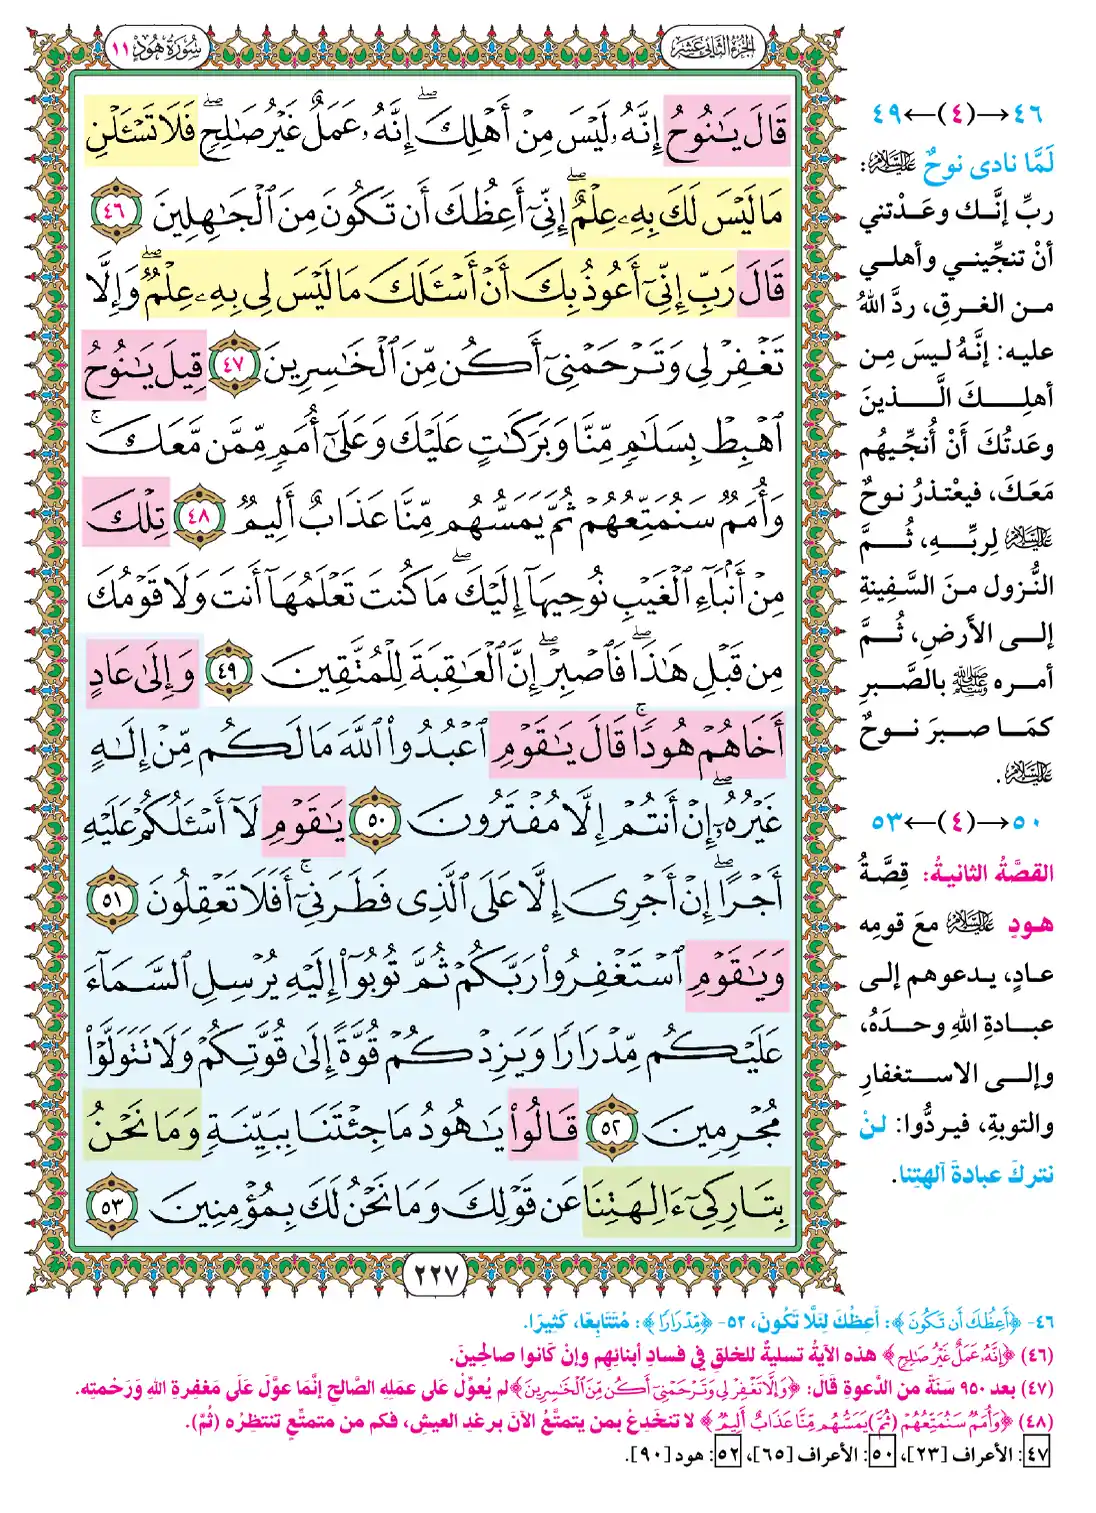 الجزء الثاني عشر
سورة هود ١١
قَالَ يَٰنُوحُ إِنَّهُۥ لَيْسَ مِنْ أَهْلِكَ ۖ إِنَّهُۥ عَمَلٌ غَيْرُ صَٰلِحٍ ۖ فَلَا تَسْـَٔلْنِ
مَا لَيْسَ لَكَ بِهِۦ عِلْمٌ ۖ إِنِّىٓ أَعِظُكَ أَن تَكُونَ مِنَ ٱلْجَٰهِلِينَ ٤٦
قَالَ رَبِّ إِنِّىٓ أَعُوذُ بِكَ أَنْ أَسْـَٔلَكَ مَا لَيْسَ لِى بِهِۦ عِلْمٌ ۖ وَإِلَّا
تَغْفِرْ لِى وَتَرْحَمْنِىٓ أَكُن مِّنَ ٱلْخَٰسِرِينَ ٤٧ قِيلَ يَٰنُوحُ
ٱهْبِطْ بِسَلَٰمٍ مِّنَّا وَبَرَكَٰتٍ عَلَيْكَ وَعَلَىٰٓ أُمَمٍ مِّمَّن مَّعَكَ ۚ
وَأُمَمٌ سَنُمَتِّعُهُمْ ثُمَّ يَمَسُّهُم مِّنَّا عَذَابٌ أَلِيمٌ ٤٨ تِلْكَ
مِنْ أَنۢبَآءِ ٱلْغَيْبِ نُوحِيهَآ إِلَيْكَ ۖ مَا كُنتَ تَعْلَمُهَآ أَنتَ وَلَا قَوْمُكَ
مِن قَبْلِ هَٰذَا ۖ فَٱصْبِرْ ۖ إِنَّ ٱلْعَٰقِبَةَ لِلْمُتَّقِينَ ٤٩ وَإِلَىٰ عَادٍ
أَخَاهُمْ هُودًا ۚ قَالَ يَٰقَوْمِ ٱعْبُدُوا۟ ٱللَّهَ مَا لَكُم مِّنْ إِلَٰهٍ
غَيْرُهُۥٓ ۖ إِنْ أَنتُمْ إِلَّا مُفْتَرُونَ ٥٠ يَٰقَوْمِ لَآ أَسْـَٔلُكُمْ عَلَيْهِ
أَجْرًا ۖ إِنْ أَجْرِىَ إِلَّا عَلَى ٱلَّذِى فَطَرَنِىٓ ۚ أَفَلَا تَعْقِلُونَ ٥١
وَيَٰقَوْمِ ٱسْتَغْفِرُوا۟ رَبَّكُمْ ثُمَّ تُوبُوٓا۟ إِلَيْهِ يُرْسِلِ ٱلسَّمَآءَ
عَلَيْكُم مِّدْرَارًا وَيَزِدْكُمْ قُوَّةً إِلَىٰ قُوَّتِكُمْ وَلَا تَتَوَلَّوْا۟
مُجْرِمِينَ ٥٢ قَالُوا۟ يَٰهُودُ مَا جِئْتَنَا بِبَيِّنَةٍ وَمَا نَحْنُ
بِتَارِكِىٓ ءَالِهَتِنَا عَن قَوْلِكَ وَمَا نَحْنُ لَكَ بِمُؤْمِنِينَ ٥٣
٢٢٧
٤٦→(٤)←٤٩
لَمَّا نادى نوحٌ عليه السلام:
ربِّ إنَّك وعَدْتني
أنْ تنجِّيني وأهلي
من الغرقِ، ردَّ اللهُ
عليه: إنَّهُ ليسَ مِن
أهلِكَ الَّذينَ
وعَدتُكَ أنْ أُنجِّيهُم
مَعَكَ، فيعْتذرُ نوحٌ
عليه السلام لِربِّهِ، ثُمَّ
النُّزول منَ السَّفِينةِ
إلى الأَرضِ، ثُمَّ
أمره ﷺ بالصَّبرِ
كمَا صبرَ نوحٌ
عليه السلام.
٥٠→(٤)←٥٣
القصَّةُ الثانيةُ: قِصَّةُ
هودٍ عليه السلام معَ قومِه
عادٍ، يدعوهم إلى
عبادةِ اللهِ وحدَهُ،
وإلى الاستغفارِ
والتوبةِ، فيردُّوا: لنْ
نتركَ عبادةَ آلهتِنا.
٤٦- ﴿أَعِظُكَ أَن تَكُونَ﴾: أَعِظُكَ لِئَلَّا تَكُونَ، ٥٢- ﴿مِّدْرَارًا﴾: مُتَتَابِعًا، كَثِيرًا.
(٤٦) ﴿إِنَّهُۥ عَمَلٌ غَيْرُ صَٰلِحٍ﴾ هذه الآيةُ تسليةٌ للخلقِ في فسادِ أبنائِهم وإنْ كَانوا صالحِينَ.
(٤٧) بعد ٩٥٠ سَنَةً من الدَّعوةِ قَالَ: ﴿وَإِلَّا تَغْفِرْ لِى وَتَرْحَمْنِىٓ أَكُن مِّنَ ٱلْخَٰسِرِينَ﴾ لم يُعوِّلْ على عملِهِ الصَّالحِ إنَّمَا عوَّلَ عَلَى مَغْفِرةِ اللهِ وَرَحْمتِه.
(٤٨) ﴿وَأُمَمٌ سَنُمَتِّعُهُمْ (ثُمَّ) يَمَسُّهُم مِّنَّا عَذَابٌ أَلِيمٌ﴾ لا تنخَدِعْ بمن يتمتَّعُ الآنَ برغدِ العيشِ، فكم من متمتِّعٍ تنتظِرُه (ثُمَّ).
٤٧: الأعراف [٢٣]، ٥٠: الأعراف [٦٥]، ٥٢: هود [٩٠].